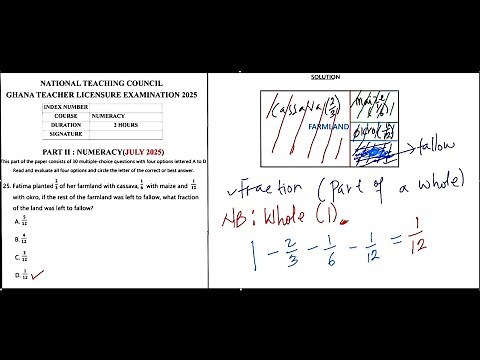 NATIONAL TEACHING COUNCIL
GHANA TEACHER LICENSURE EXAMINATION 2025
INDEX NUMBER
COURSE NUMERACY
DURATION 2 HOURS
SIGNATURE
PART II : NUMERACY(JULY 2025)
This part of the paper consists of 30 multiple-choice questions with four options lettered A to D
Read and evaluate all four options and circle the letter of the correct or best answer.
25. Fatima planted 2/3 of her farmland with cassava, 1/6 with maize and 1/12
with okro, if the rest of the farmland was left to fallow, what fraction
of the land was left to fallow?
A. 5/12
B. 4/12
C. 3/12
D. 1/12
SOLUTION
Cassava (2/3)
maize (1/6)
FARMLAND
okro (1/12)
fallow
Fraction (Part of a whole)
NB: Whole (1).
1 - 2/3 - 1/6 - 1/12 = 1/12